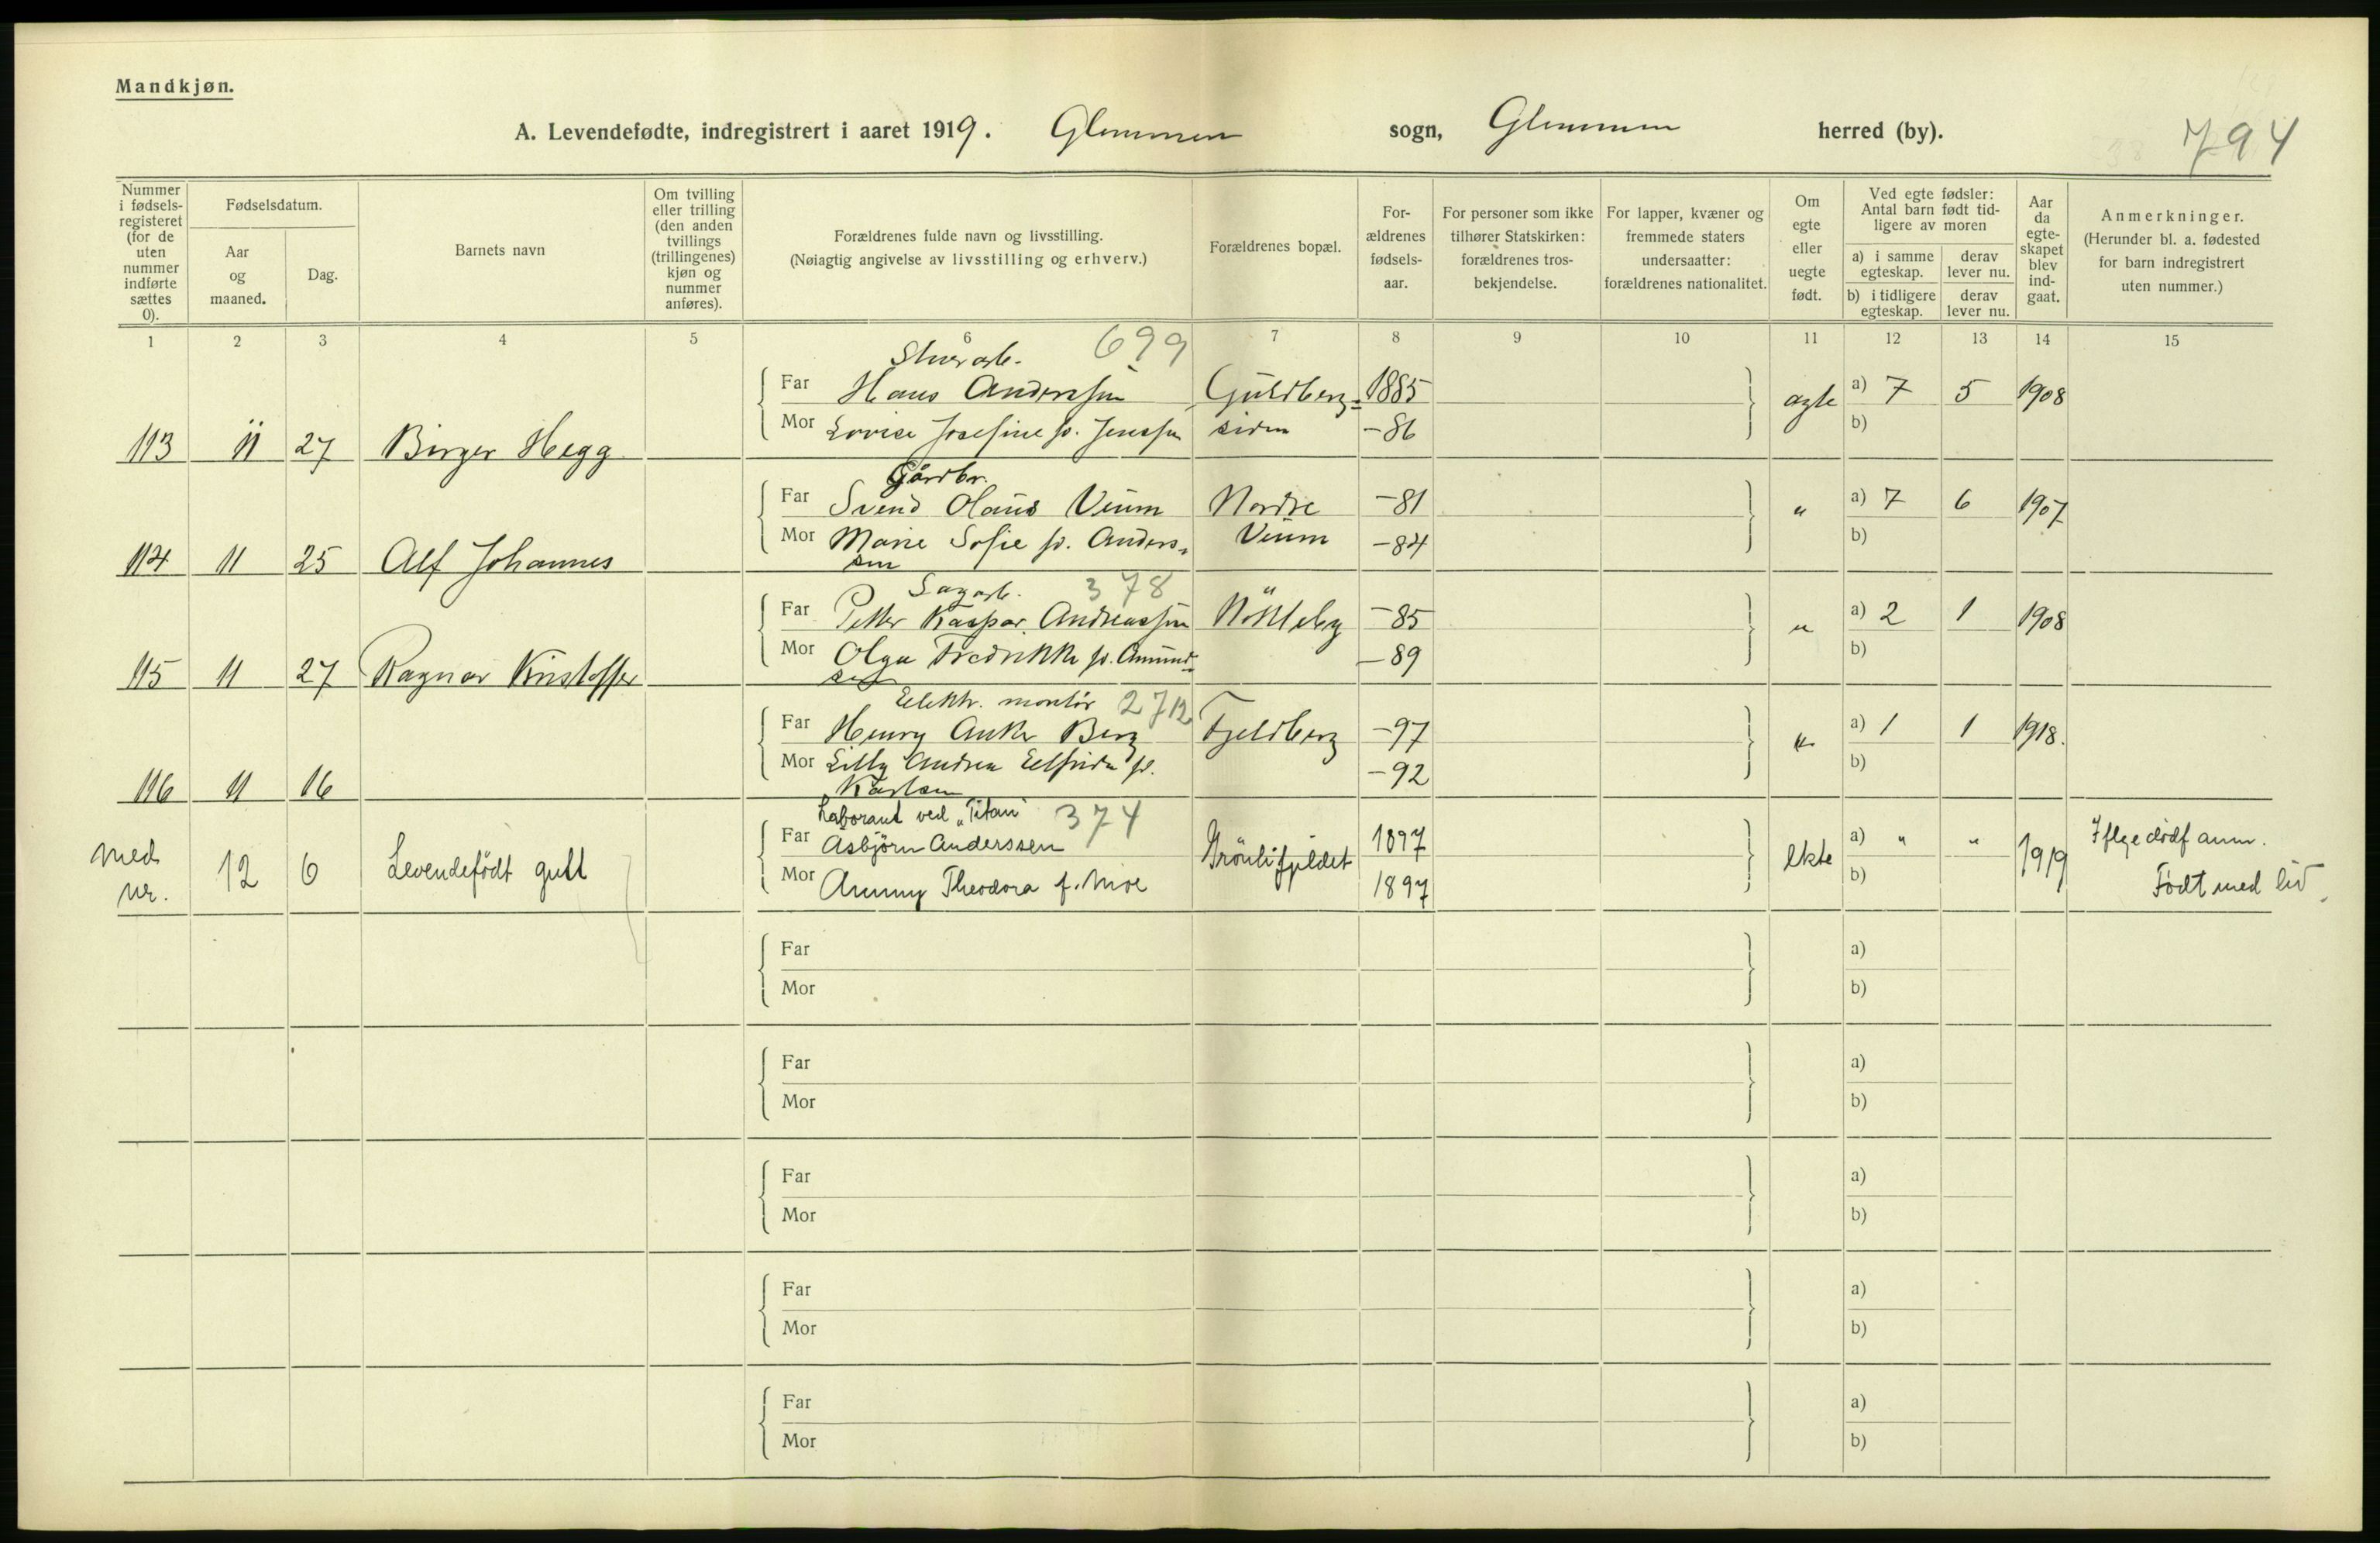 Mandkjøn.
A. Levendefødte, indregistrert i aaret 1919. Glemmen sogn, Glemmen herred (by). 794
Nummer i fødsels-registeret (for de uten nummer indførte sættes 0).
Fødselsdatum.
Aar og maaned.
Dag.
Barnets navn
Om tvilling eller trilling (den anden tvillings (trillingenes) kjøn og nummer anføres).
Forældrenes fulde navn og livsstilling.
(Nøiagtig angivelse av livsstilling og erhverv.)
Forældrenes bopæl.
For-ældrenes fødsels-aar.
For personer som ikke tilhører Statskirken: forældrenes tros-bekjendelse.
For lapper, kvæner og fremmede staters undersaatter: forældrenes nationalitet.
Om egte eller uegte født.
Ved egte fødsler: Antal barn født tid-ligere av moren
a) i samme egteskap.
derav lever nu.
b) i tidligere egteskap.
derav lever nu.
Aar da egte-skapet blev ind-gaat.
Anmerkninger.
(Herunder bl. a. fødested for barn indregistrert uten nummer.)
1 2 3 4 5 6 7 8 9 10 11 12 13 14 15
699
Far Hans Anderssen Guldberg- 1885 ægte a) 7 5 1908
Mor Lovise Josefine f. Jenssen siden -86 b)
113 11 27 Birger Hegg
Gårdbr.
Far Svend Olaus Veum Nordre -81 " a) 7 6 1907
Mor Marie Sofie f. Anders- Veum -84 b)
114 11 25 Alf Johannes sen
Sagarb. 378
Far Petter Kaspar Andreassen -85 " a) 2 1 1908
Mor Olga Fredrikke f. Amund- -89 b)
115 11 27 Ragnar Kristoffer sen
Elektr. montör 272
Far Henry Anker Berg Fjeldberg -97 " a) 1 1 1918.
Mor Lilly Andrea Elfrida f. -92 b)
116 11 16 Karlsen
Laborant ved "Titan" 374
Far Asbjörn Anderssen Grönlifjeldet 1897 ekte a) " " 1919 Iflge dødf anm.
Mor Ammy Theodora f. Moe 1897 b) Født med liv
med nr. 12 6 Levendefödt gutt
Far a)
Mor b)
Far a)
Mor b)
Far a)
Mor b)
Far a)
Mor b)
Far a)
Mor b)